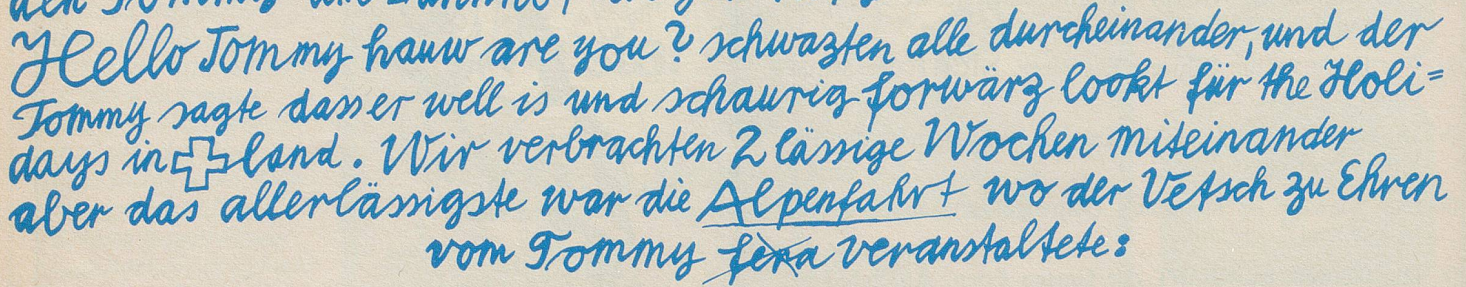 den Tommy
Hello Tommy hauw are you? schwazten alle durcheinander, und der
Tommy sagte dass er well is und schaurig forwärz lookt für the Holi=
days in ✚land. Wir verbrachten 2 lässige Wochen miteinander
aber das allerlässigste war die Alpenfahrt wo der Vetsch zu Ehren
vom Tommy fera veranstaltete: